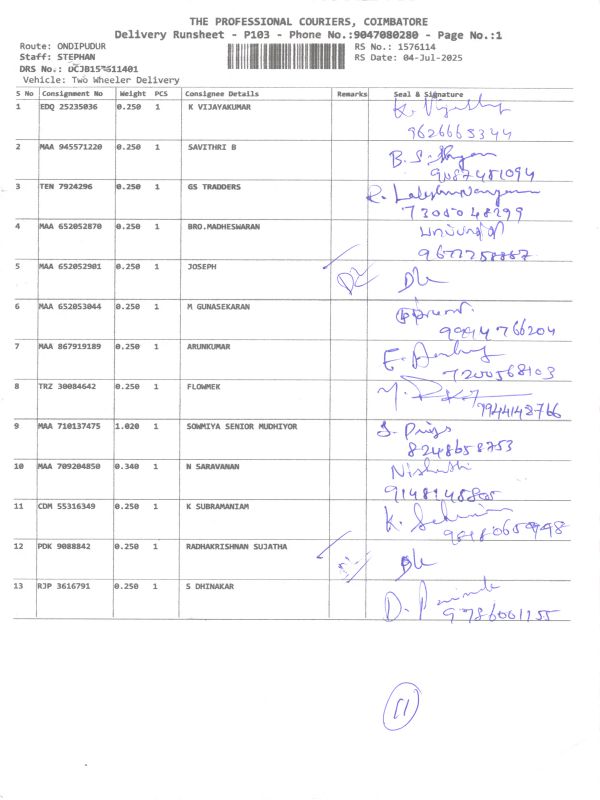 THE PROFESSIONAL COURIERS, COIMBATORE
Delivery Runsheet - P103 - Phone No.:9047080280 - Page No.:1
Route: ONDIPUDUR
RS No.: 1576114
Staff: STEPHAN
RS Date: 04-Jul-2025
DRS No.:
Vehicle: Two Wheeler Delivery
S No Consignment No Weight PCS Consignee Details Remarks Seal & Signature
1 EDQ 25235036 0.250 1 K VIJAYAKUMAR
9626665344
2 MAA 945571220 0.250 1 SAVITHRI B
9087481094
3 TEN 7924296 0.250 1 GS TRADDERS
7305048299
4 MAA 652052870 0.250 1 BRO.MADHESWARAN
5 MAA 652052901 0.250 1 JOSEPH
DL
6 MAA 652053044 0.250 1 M GUNASEKARAN
9994766204
7 MAA 867919189 0.250 1 ARUNKUMAR
7200568103
8 TRZ 30084642 0.250 1 FLOWMEK
9 MAA 710137475 1.020 1 SOWMIYA SENIOR MUDHIYOR
8248658753
10 MAA 709204850 0.340 1 N SARAVANAN
11 CDM 55316349 0.250 1 K SUBRAMANIAM
12 PDK 9088842 0.250 1 RADHAKRISHNAN SUJATHA
DL
13 RJP 3616791 0.250 1 S DHINAKAR
9786001155
11